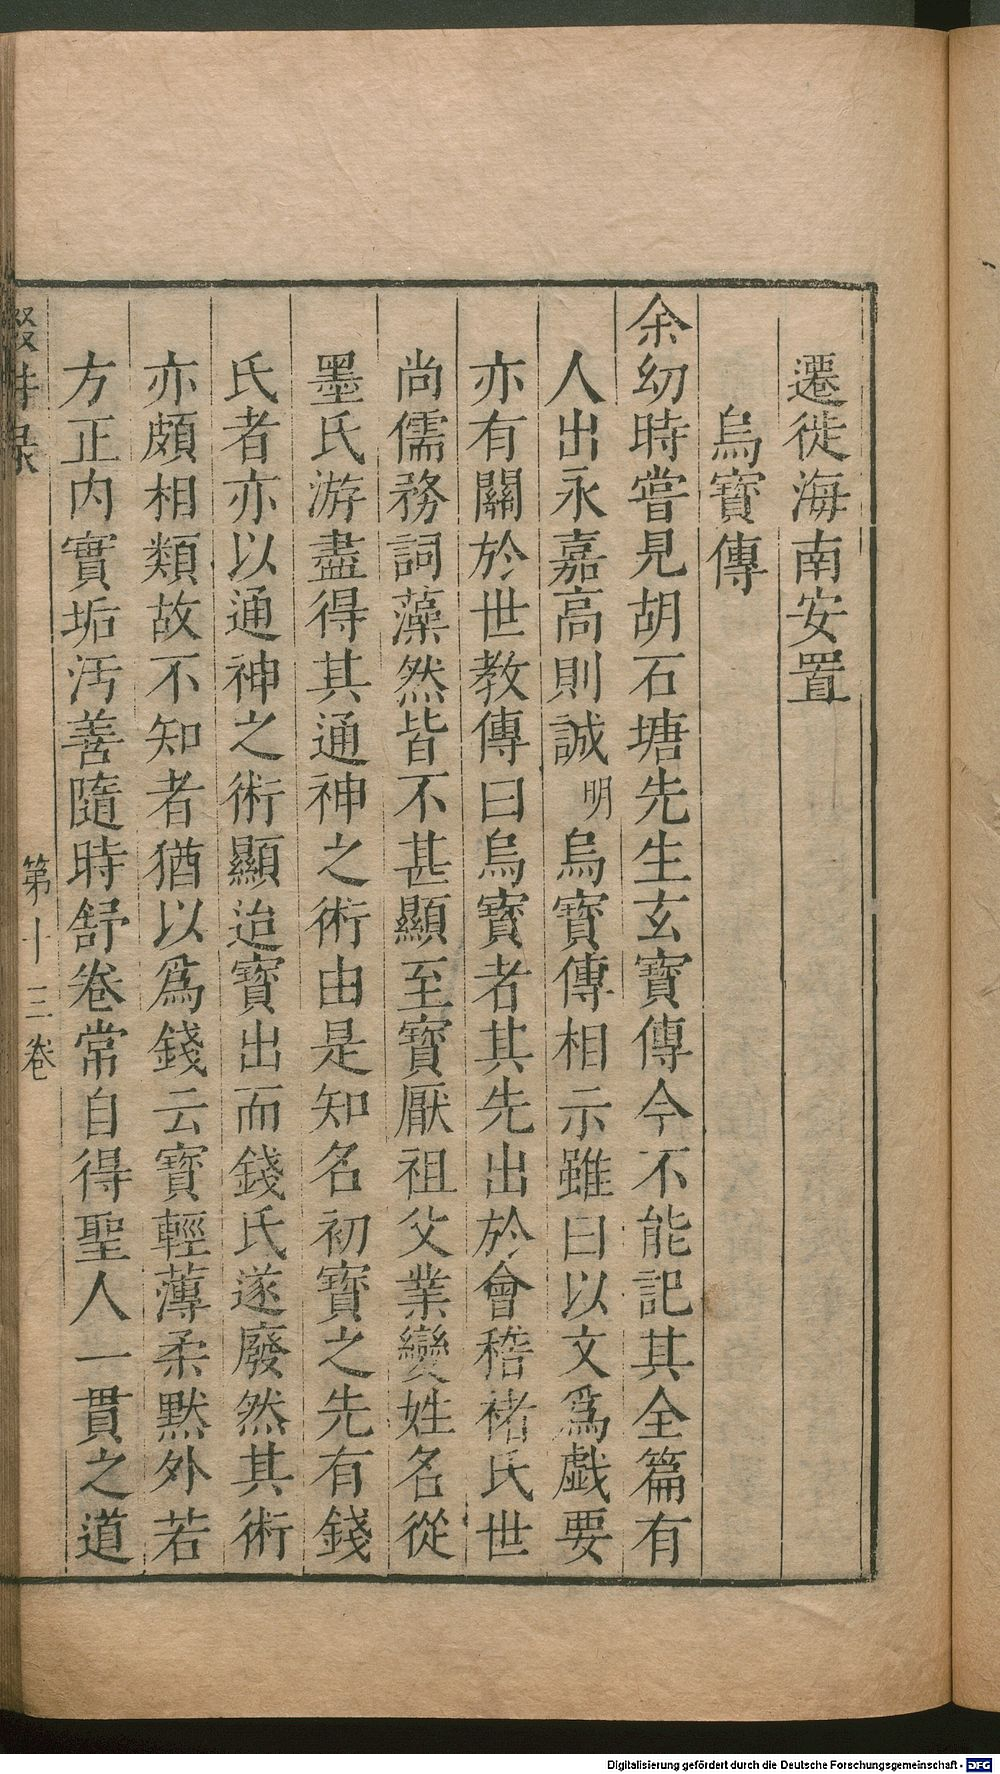 遷徙海南安置
烏寶傳
余幼時嘗見胡石塘先生玄寶傳今不能記其全篇有
人出永嘉高則誠明烏寶傳相示雖曰以文爲戯要
亦有關於世教傳曰烏寶者其先出於會稽褚氏世
尚儒務詞藻然皆不甚顯至寶厭祖父業變姓名從
墨氏游盡得其通神之術由是知名初寶之先有錢
氏者亦以通神之術顯迨寶出而錢氏遂廢然其術
亦頗相類故不知者猶以爲錢云寶輕薄柔默外若
方正内實垢汚善隨時舒卷常自得聖人一貫之道
第十三卷
Digitalisierung gefördert durch die Deutsche Forschungsgemeinschaft - DFG